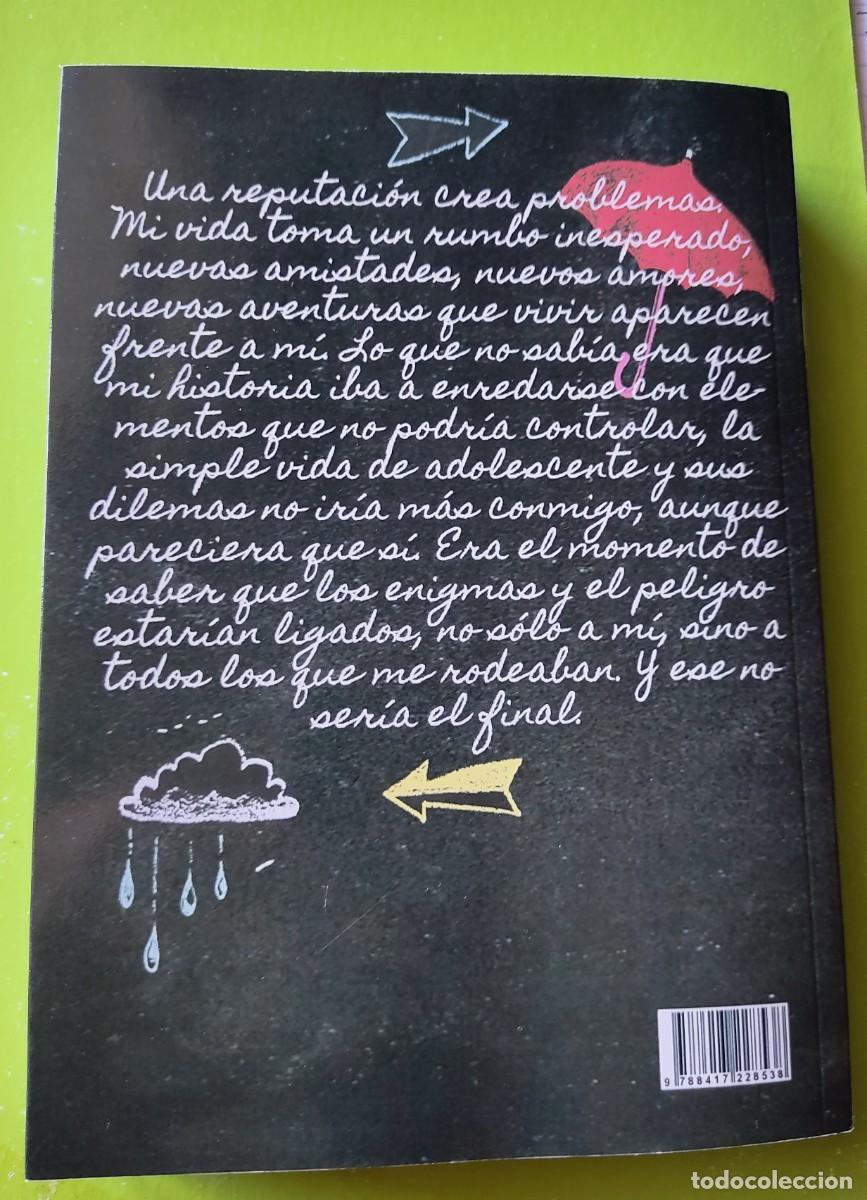 Una reputación crea problemas.
Mi vida toma un rumbo inesperado,
nuevas amistades, nuevos amores,
nuevas aventuras que vivir aparecen
frente a mí. Lo que no sabía era que
mi historia iba a enredarse con ele-
mentos que no podría controlar, la
simple vida de adolescente y sus
dilemas no iría más conmigo, aunque
pareciera que sí. Era el momento de
saber que los enigmas y el peligro
estarían ligados, no sólo a mí, sino a
todos los que me rodeaban. Y ese no
sería el final.
9 788417 228538
todocoleccion